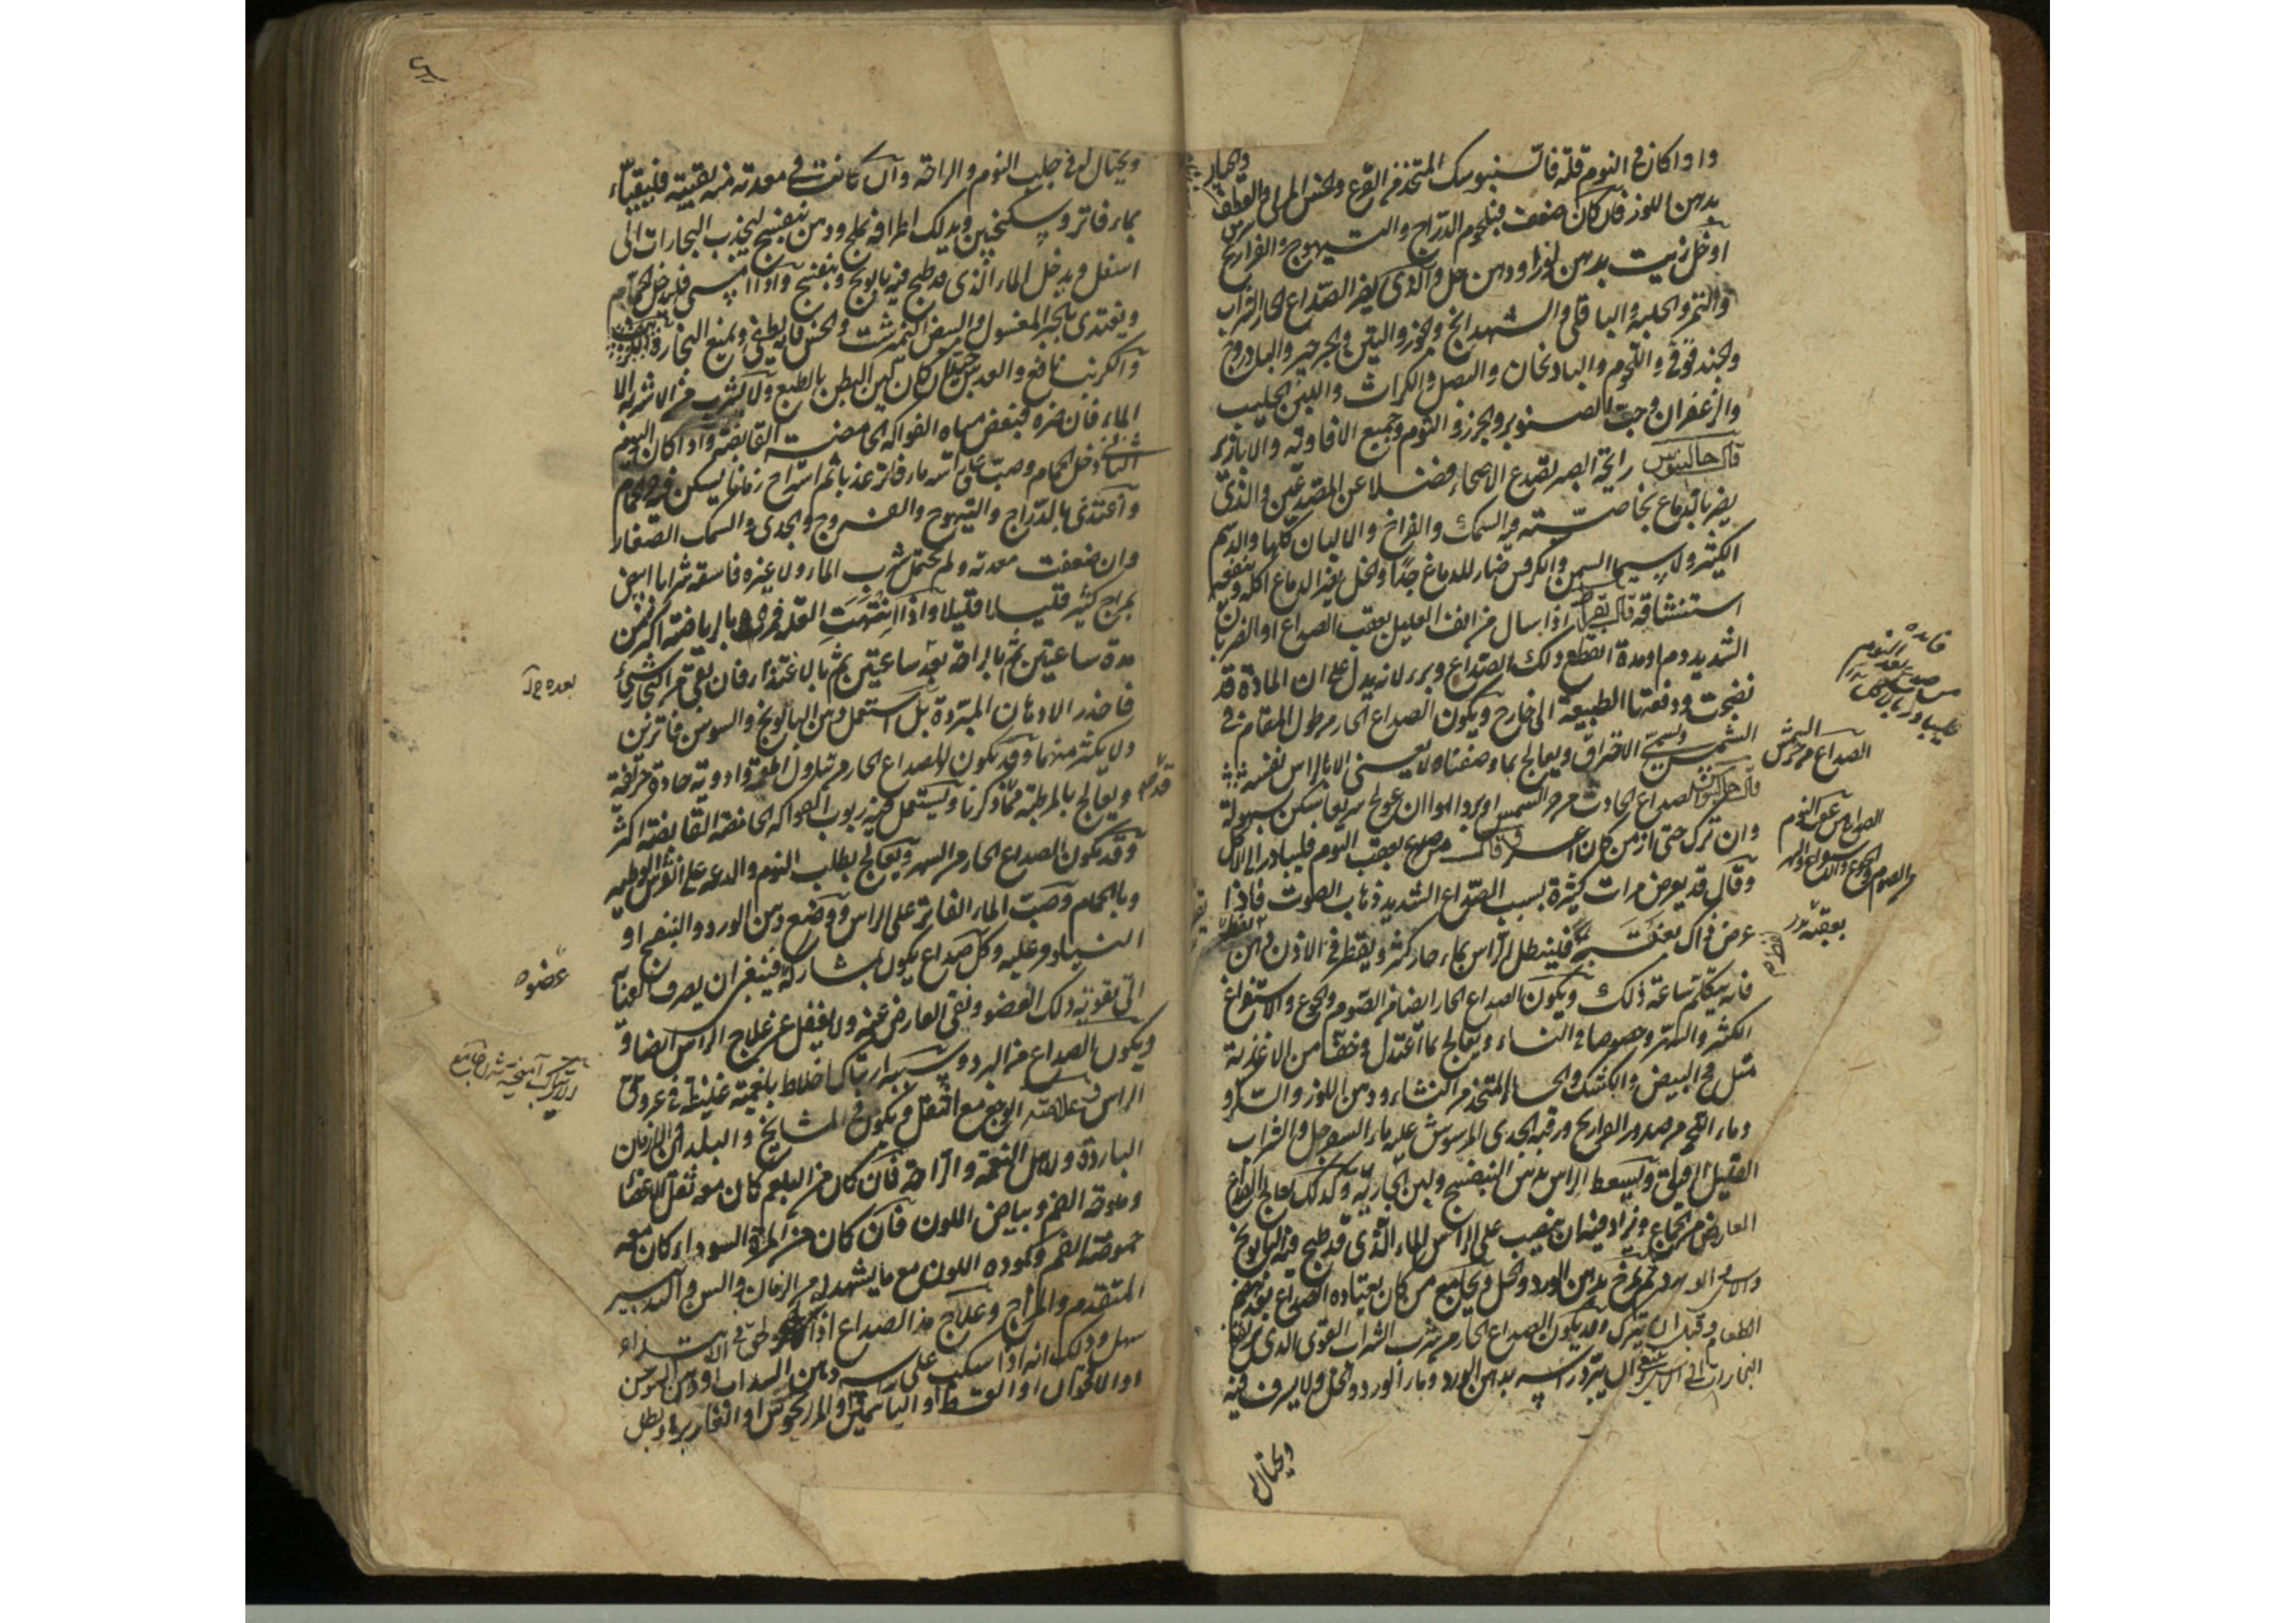 واذا كان في النوم قلة فالسنبوسك المتخذ من القرع والخس المربى والقطف
بدهن اللوز فان كان ضعف فبلحوم الدراج والتيهوج والفراريج
او خل زيت بدهن لوز او دهن خل والذي يضر الصداع الحار الشراب
والتمر والحلبة والباقلي والشهدانج والجوز والتين والجرجير والبادروج
والحندقوقى واللحوم والبادنجان والبصل والكراث واللبن الحليب
والزعفران وحب الصنوبر والجزر والثوم وجميع الافاويه والابازير
قال جالينوس رايحة البصر تصدع الاصحاء فضلا عن المصدعين والذي
يضر بالدماغ بخاصيته السمك والفراخ والالبان كلها والدسم
الكثير ولا سيما السمن والكرفس ضار للدماغ جدا والخل يضر الدماغ اكله وينفعه
استنشاقه قال بقراط اذا سال من انف العليل بعقب الصداع او الضربان
الشديد دم او مدة انقطع ذلك الصداع وبرء لانه يدل على ان المادة قد
نضجت ودفعتها الطبيعة الى خارج ويكون الصداع الحار من طول المقام في
الشمس ويسمى الاحتراق ويعالج بما وصفناه ولا يعتنى الا بالراس نفسه
قال جالينوس الصداع الحادث من حر الشمس او برد الهوا ان عولج سريعا سكن بسهولة
وان ترك حتى ازمن كان اعسر وقال من صدع بعقب النوم فليبادر الى الاكل
وقال قد يعرض مرات كثيرة بسبب الصداع الشديد ذهاب الصوت فاذا
عرض ذاك بغتة فلينطل الراس بماء حار كثير ويقطر في الاذن دهن
فانه يتكلم ساعة ذلك ويكون الصداع الحار ايضا من الصوم والجوع والاستفراغ
الكثير والسهر وخصوصا في النساء ويعالج بما اعتدل وخف من الاغذية
مثل مح البيض والكشك والحساء المتخذ من النشاء ودهن اللوز والسكر و
وماء اللحم من صدور الفراريج ورقبة الجدي المرشوش عليه ماء السفرجل والشراب
القليل الرقيق ويسعط الراس بدهن البنفسج ولبن الجارية وكذلك يعالج الصداع
العارض من الجماع ويزاد فيه ان يصب على الراس الماء الذي قد طبخ فيه البابونج
والاس والورد ثم يمرخ بدهن الورد والخل ويجامع من كان يعتاده الصداع بعد هضم
الطعام وقبل ان يتبرك وقد يكون الصداع الحار من شرب الشراب القوي الذي
البخارات الى الراس فينبغي ان يبرد راسه بدهن الورد وماء الورد والخل ولا يسرف فيه
ويحتال له
فائدة
الصداع من حر الشمس
الصداع من عقب النوم
ويحتال له في جلب النوم والراحة وان كانت في معدته منه بقية فليقياء
بماء فاتر وسكنجبين ويدلك اطرافه بملح ودهن بنفسج ليجذب البخارات الى
اسفل ويدخل الماء الذي قد طبخ فيه بابونج وبنفسج واذا امسى فليدخل الحمام
ويغتذى بالخبز المغسول والبيض النمبرشت والخس فانه يطفي ويمنع البخار
والكرنب نافع والعدس جيد ان كان لين البطن بالطبع ولا يشرب من الاشربة الا
الماء فان ضره فبعض مياه الفواكه الحامضة القابضة واذا كان اليوم
الثاني دخل الحمام وصب على راسه ماء فاتر عذب ثم استراح زمانا يسكن فيه
واغتذى بالدراج والتيهوج والفروج والجدي والسمك الصغار
وان ضعفت معدته ولم يحتمل شرب الماء ولا غيره فاسقه شرابا ابيض
بمزاج كثير قليلا قليلا واذا انتهت العلة فمره بالرياضة اكثر من
مدة ساعتين ثم بالراحة بعد ساعتين ثم بالاغتذاء فان بقي من البخار شيئ
فاحذر الادهان المبردة بل استعمل دهن البابونج والسوسن فاترين
ولا يكثر منهما وقد يكون الصداع الحار من تناول اطعمة وادوية حادة حريفة
ويعالج بالمرطبة مما ذكرنا ويستعمل فيه ربوب الفواكه الحامضة القابضة اكثر
وقد يكون الصداع الحار من السهر ويعالج بطلب النوم والدعة على الفرش الوطية
وبالحمام وصب الماء الفاتر على الراس ووضع دهن الورد والبنفسج او
النيلوفر عليه وكل صداع يكون بمشاركة فينبغي ان يصرف العناية
الى تقوية ذلك العضو ونفي العارض عنه ولا يغفل عن علاج الراس ايضا و
ويكون الصداع من البرد وسببه ارتباك اخلاط بلغمية غليظة في عروق
الراس وعلامته الوجع مع الثقل ويكون في المشايخ والبلدان والازمان
الباردة ولاهل النعمة والراحة فان كان من البلغم كان معه ثقل الاعضاء
وملوحة الفم وبياض اللون فان كان من المرة السوداء كان معه
حموضة الفم وكمودة اللون مع ما يشهد له من الزمان والسن والتدبير
المتقدم والمزاج وعلاج هذا الصداع اذا لحق في الابتداء
سهل وذلك انه اذا سكب على راسه دهن السداب او دهن السوسن
او الاقحوان او القسط او الياسمين او المرزنجوش او الغار بري وبطل
بعده خ‌ل
عضوه